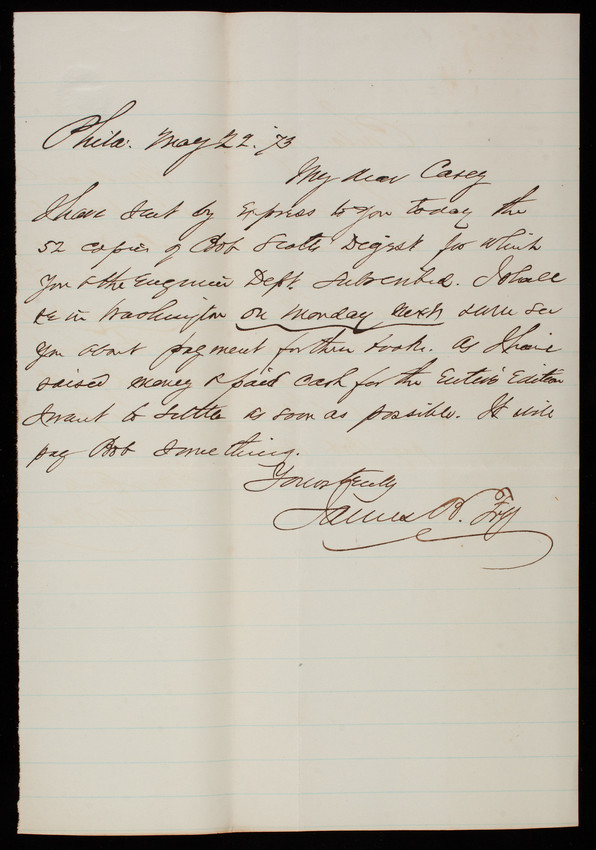 Phila. May 22. 73
My dear Casey
I have sent by Express to you today the
52 copies of Bob Scotts Digest for which
you & the Engineer Dept. subscribed. I shall
be in Washington on Monday next & will see
you about payment for these books. As I have
raised money & paid cash for the Entire Edition
I want to settle as soon as possible. It will
pay Bob something.
Yours truly
James B. Fry